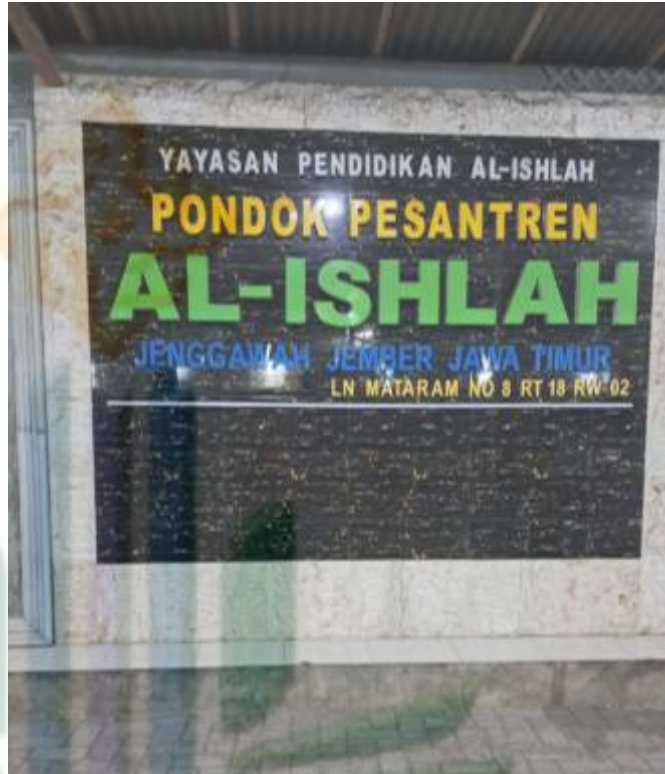 YAYASAN PENDIDIKAN AL-ISHLAH
PONDOK PESANTREN
AL-ISHLAH
JENGGAWAH JEMBER JAWA TIMUR
LN MATARAM NO 8 RT 18 RW 02